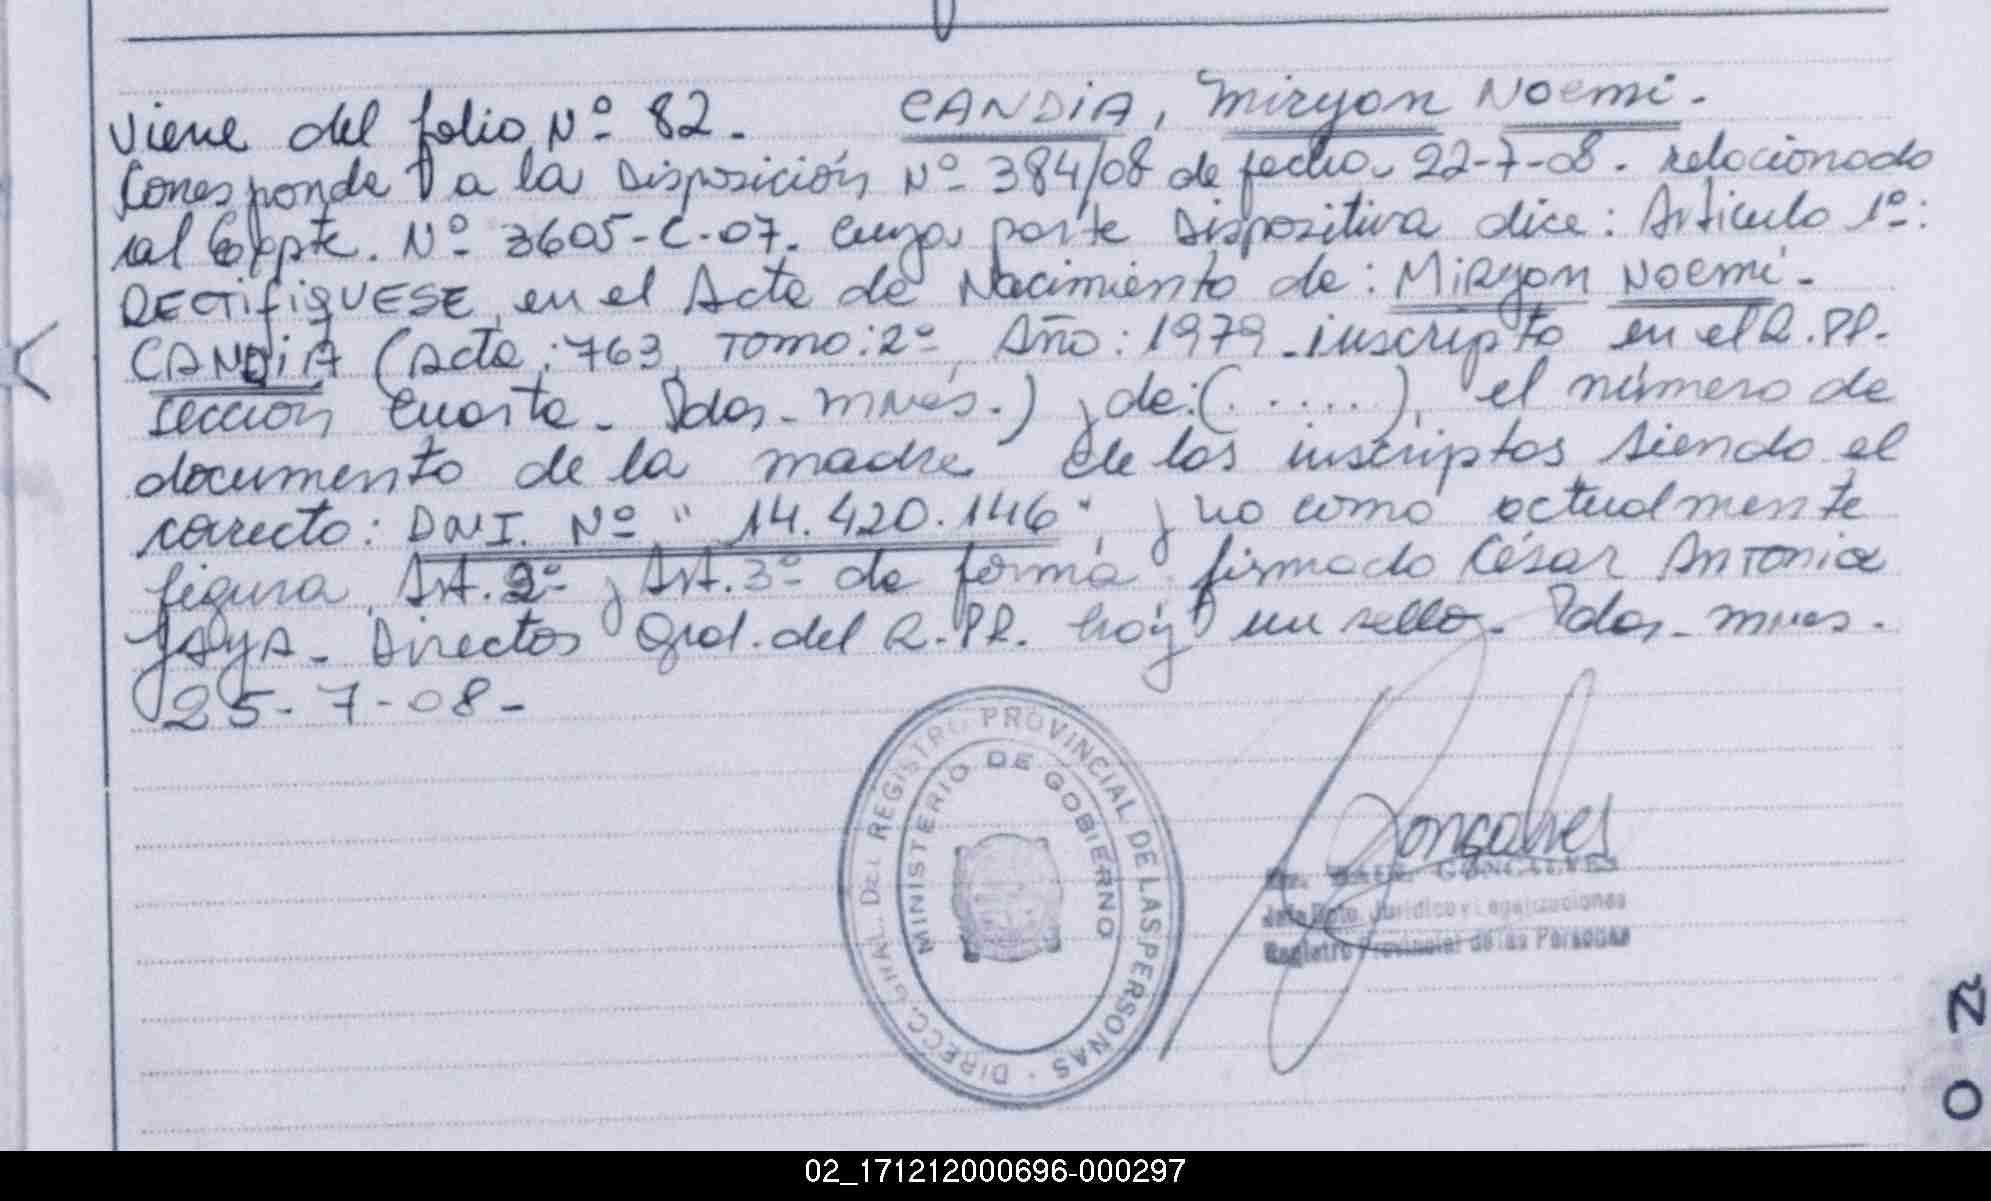 Viene del folio Nº 82. CANDIA, Miryan Noemi.
Corresponde a la Disposición Nº 384/08 de fecha 22-7-08. relacionado
al Expte. Nº 3605-C-07. cuya parte Dispositiva dice: Articulo 1º:
RECTIFIQUESE, en el Acta de Nacimiento de: Miryan Noemi.
CANDIA (Acta: 763, Tomo: 2º, Año: 1979. inscripto en el R.PP.
sección cuarta. Pdas. mnes.) y de: (.....), el número de
documento de la madre de los inscriptos siendo el
correcto: DNI. Nº "14.420.146", y no como actualmente
figura. Art. 2º y Art. 3º de forma. firmado César Antonio
Director Gral. del R.PP. hay un sello. Pdas. mnes.
25-7-08.-
DIRECC. GRAL. DEL REGISTRO PROVINCIAL DE LAS PERSONAS
MINISTERIO DE GOBIERNO
Gonçalves
GONCALVES
Jefe Dpto. Jurídico y Legalizaciones
Registro Provincial de las Personas
02_171212000696-000297